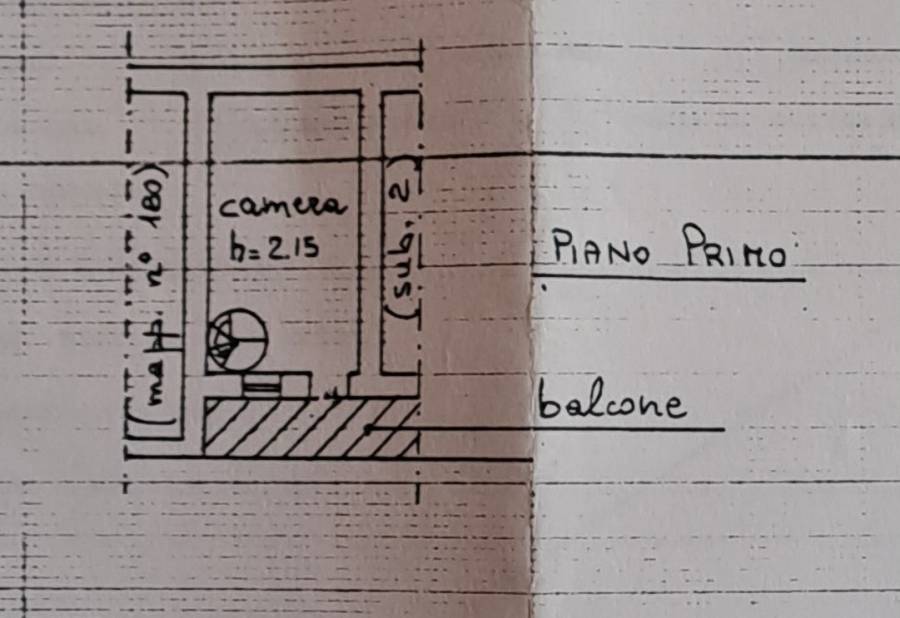 (mapp. n° 180)
camera
h=2.15
(sub. 2)
PIANO PRIMO
balcone